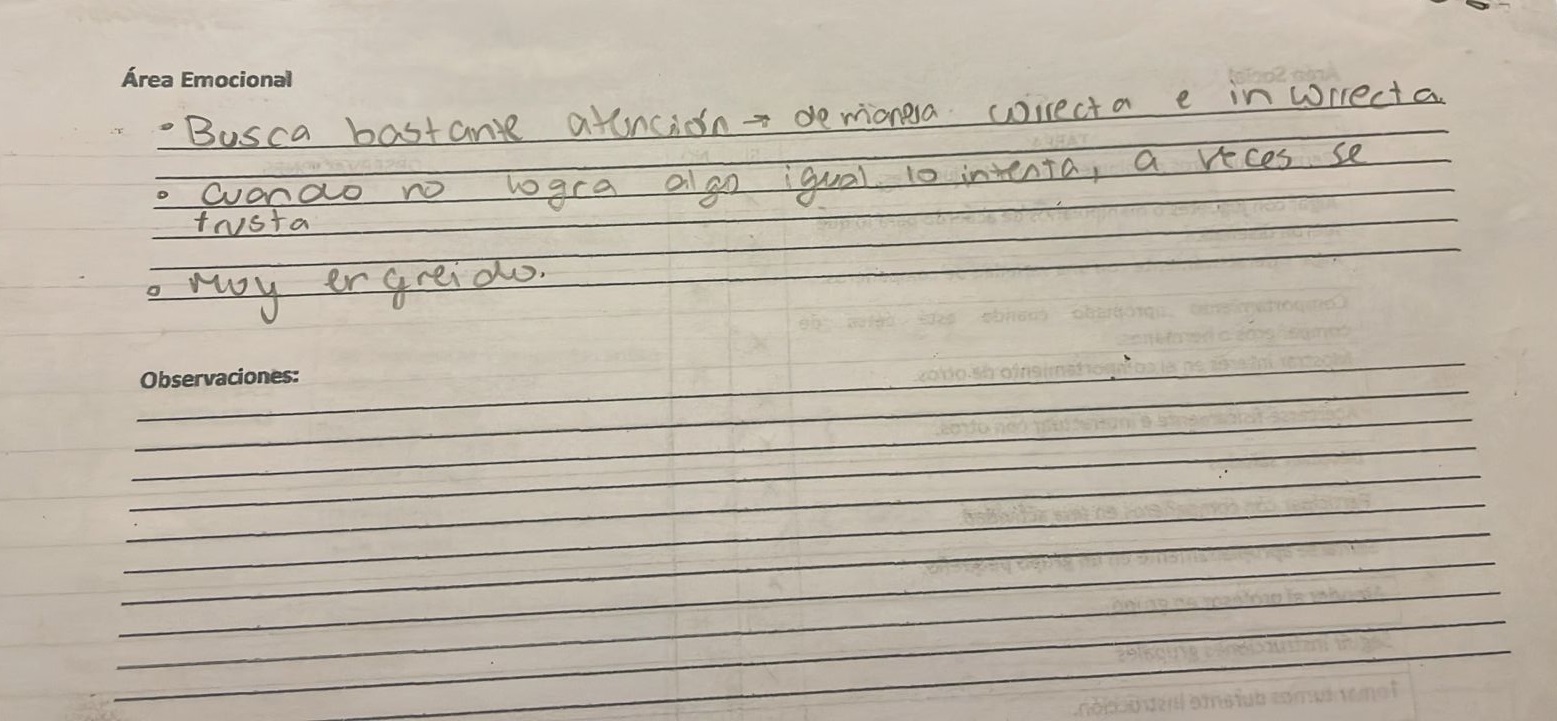 Área Emocional
• Busca bastante atención → de manera correcta e incorrecta
• Cuando no logra algo igual lo intenta, a veces se
frusta
• Muy engreido.
Observaciones: